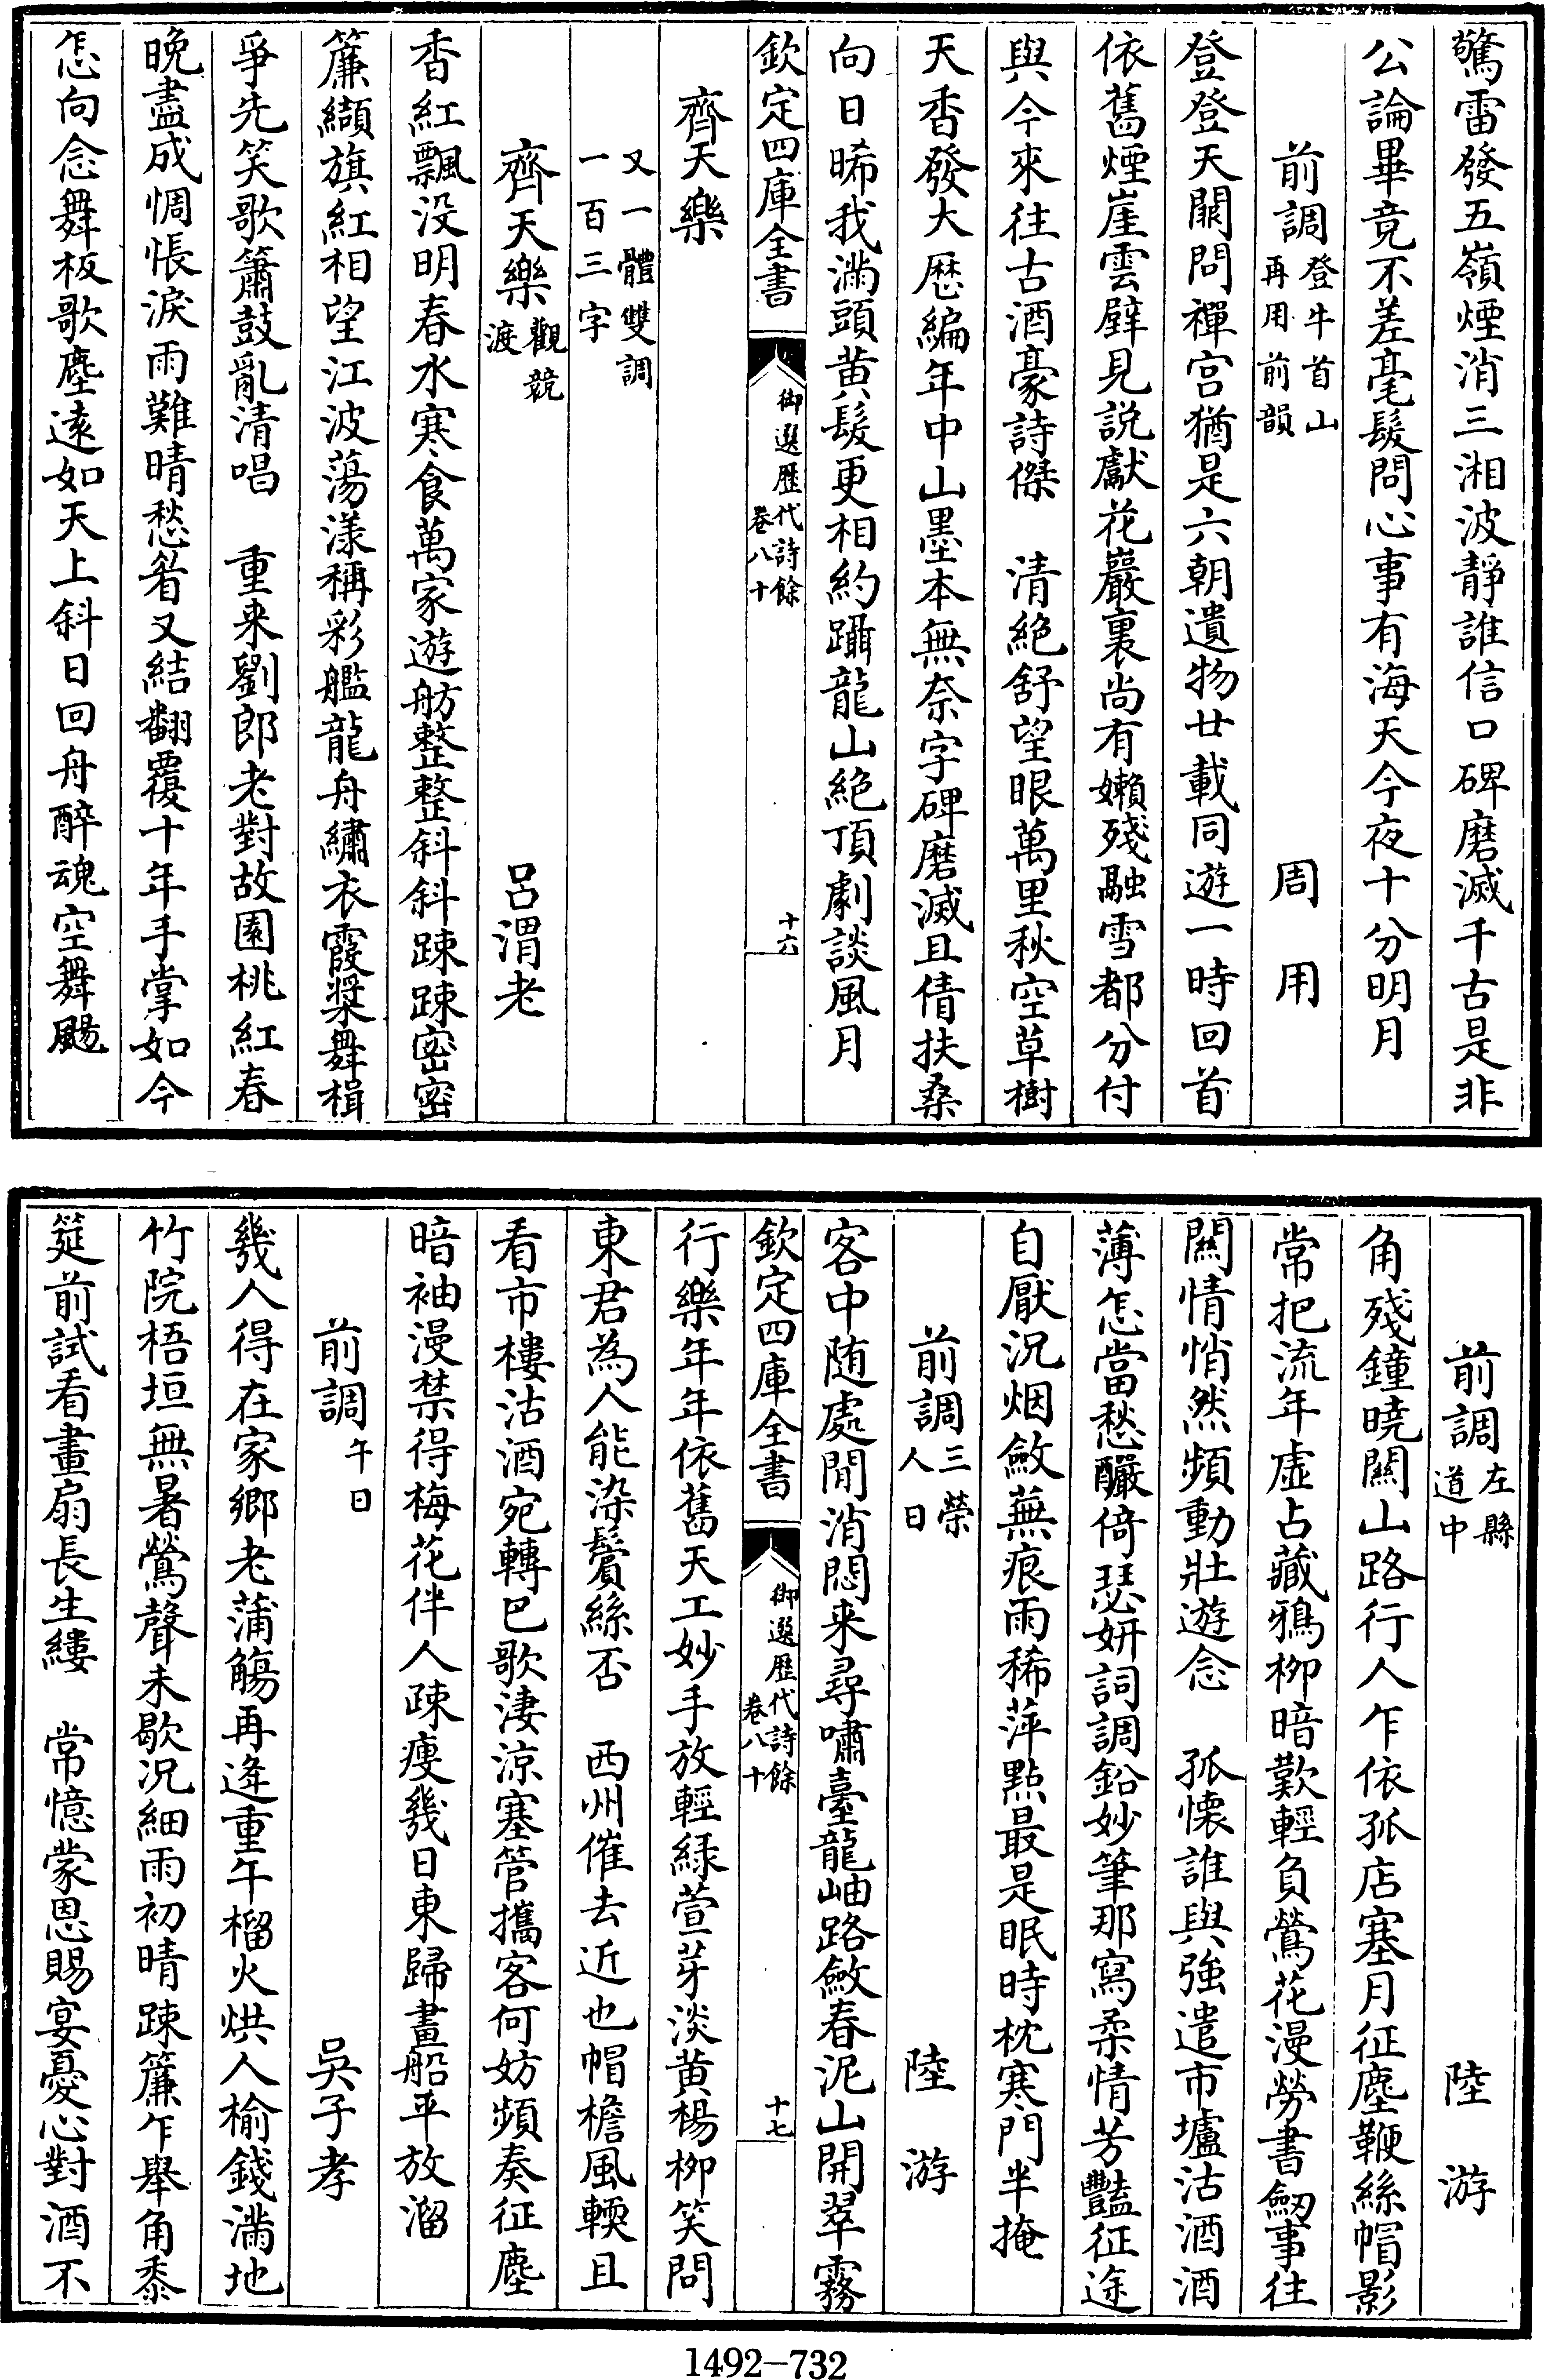 驚雷發五嶺煙消三湘波靜誰信口碑磨滅千古是非
公論畢竟不差毫髮問心事有海天今夜十分明月
前調登牛首山再用前韻 周用
登登天關問禪宫猶是六朝遺物廿載同遊一時回首
依舊煙崖雲壁見説獻花巖裏尚有嬾殘融雪都分付
與今來往古酒豪詩傑 清絶舒望眼萬里秋空草樹
天香發大厯編年中山墨本無奈字碑磨滅且倩扶桑
向日晞我滿頭黄髮更相約躡龍山絶頂劇談風月
欽定四庫全書 御選歷代詩餘卷八十 十六
齊天樂
又一體雙調一百三字
齊天樂觀競渡 呂渭老
香紅飄没明春水寒食萬家遊舫整整斜斜踈踈密密
簾纈旗紅相望江波蕩漾稱彩艦龍舟繡衣霞槳舞楫
爭先笑歌簫鼓亂清唱 重来劉郎老對故園桃紅春
晚盡成惆悵淚雨難晴愁眉又結翻覆十年手掌如今
怎向念舞板歌塵遠如天上斜日回舟醉魂空舞颺
前調左縣道中 陸游
角殘鐘曉關山路行人乍依孤店塞月征塵鞭絲帽影
常把流年虛占藏鴉柳暗歎輕負鶯花漫勞書劒事往
關情悄然頻動壯遊念 孤懐誰與強遣市壚沽酒酒
薄怎當愁釅倚瑟妍詞調鉛妙筆那寫柔情芳豔征途
自厭況烟斂蕪痕雨稀萍點最是眠時枕寒門半掩
前調三榮人日 陸游
客中随處閒消悶来尋嘯臺龍岫路斂春泥山開翠霧
欽定四庫全書 御選歷代詩餘卷八十 十七
行樂年年依舊天工妙手放輕緑萱芽淡黄楊柳笑問
東君為人能染鬢絲否 西州催去近也帽檐風輭且
看市樓沽酒宛轉巴歌淒涼塞管攜客何妨頻奏征塵
暗袖漫禁得梅花伴人踈瘦幾日東歸畫船平放溜
前調午日 吳子孝
幾人得在家鄉老蒲觴再逢重午榴火烘人榆錢滿地
竹院梧垣無暑鶯聲未歇况細雨初晴踈簾乍舉角黍
筵前試看畫扇長生縷 常憶蒙恩賜宴憂心對酒不
1492-732